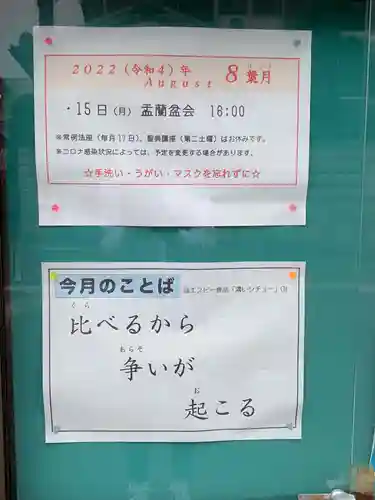 2022（令和4）年
August
8 葉月
はづき
・15日（月） 盂蘭盆会 18:00
※常例法座（毎月17日）、聖典講座（第二土曜）はお休みです。
※コロナ感染状況によっては、予定を変更する場合があります。
☆手洗い・うがい・マスクを忘れずに☆
今月のことば
エスビー食品「濃いシチュー」
くら
比べるから
あらそ
争いが
お
起こる